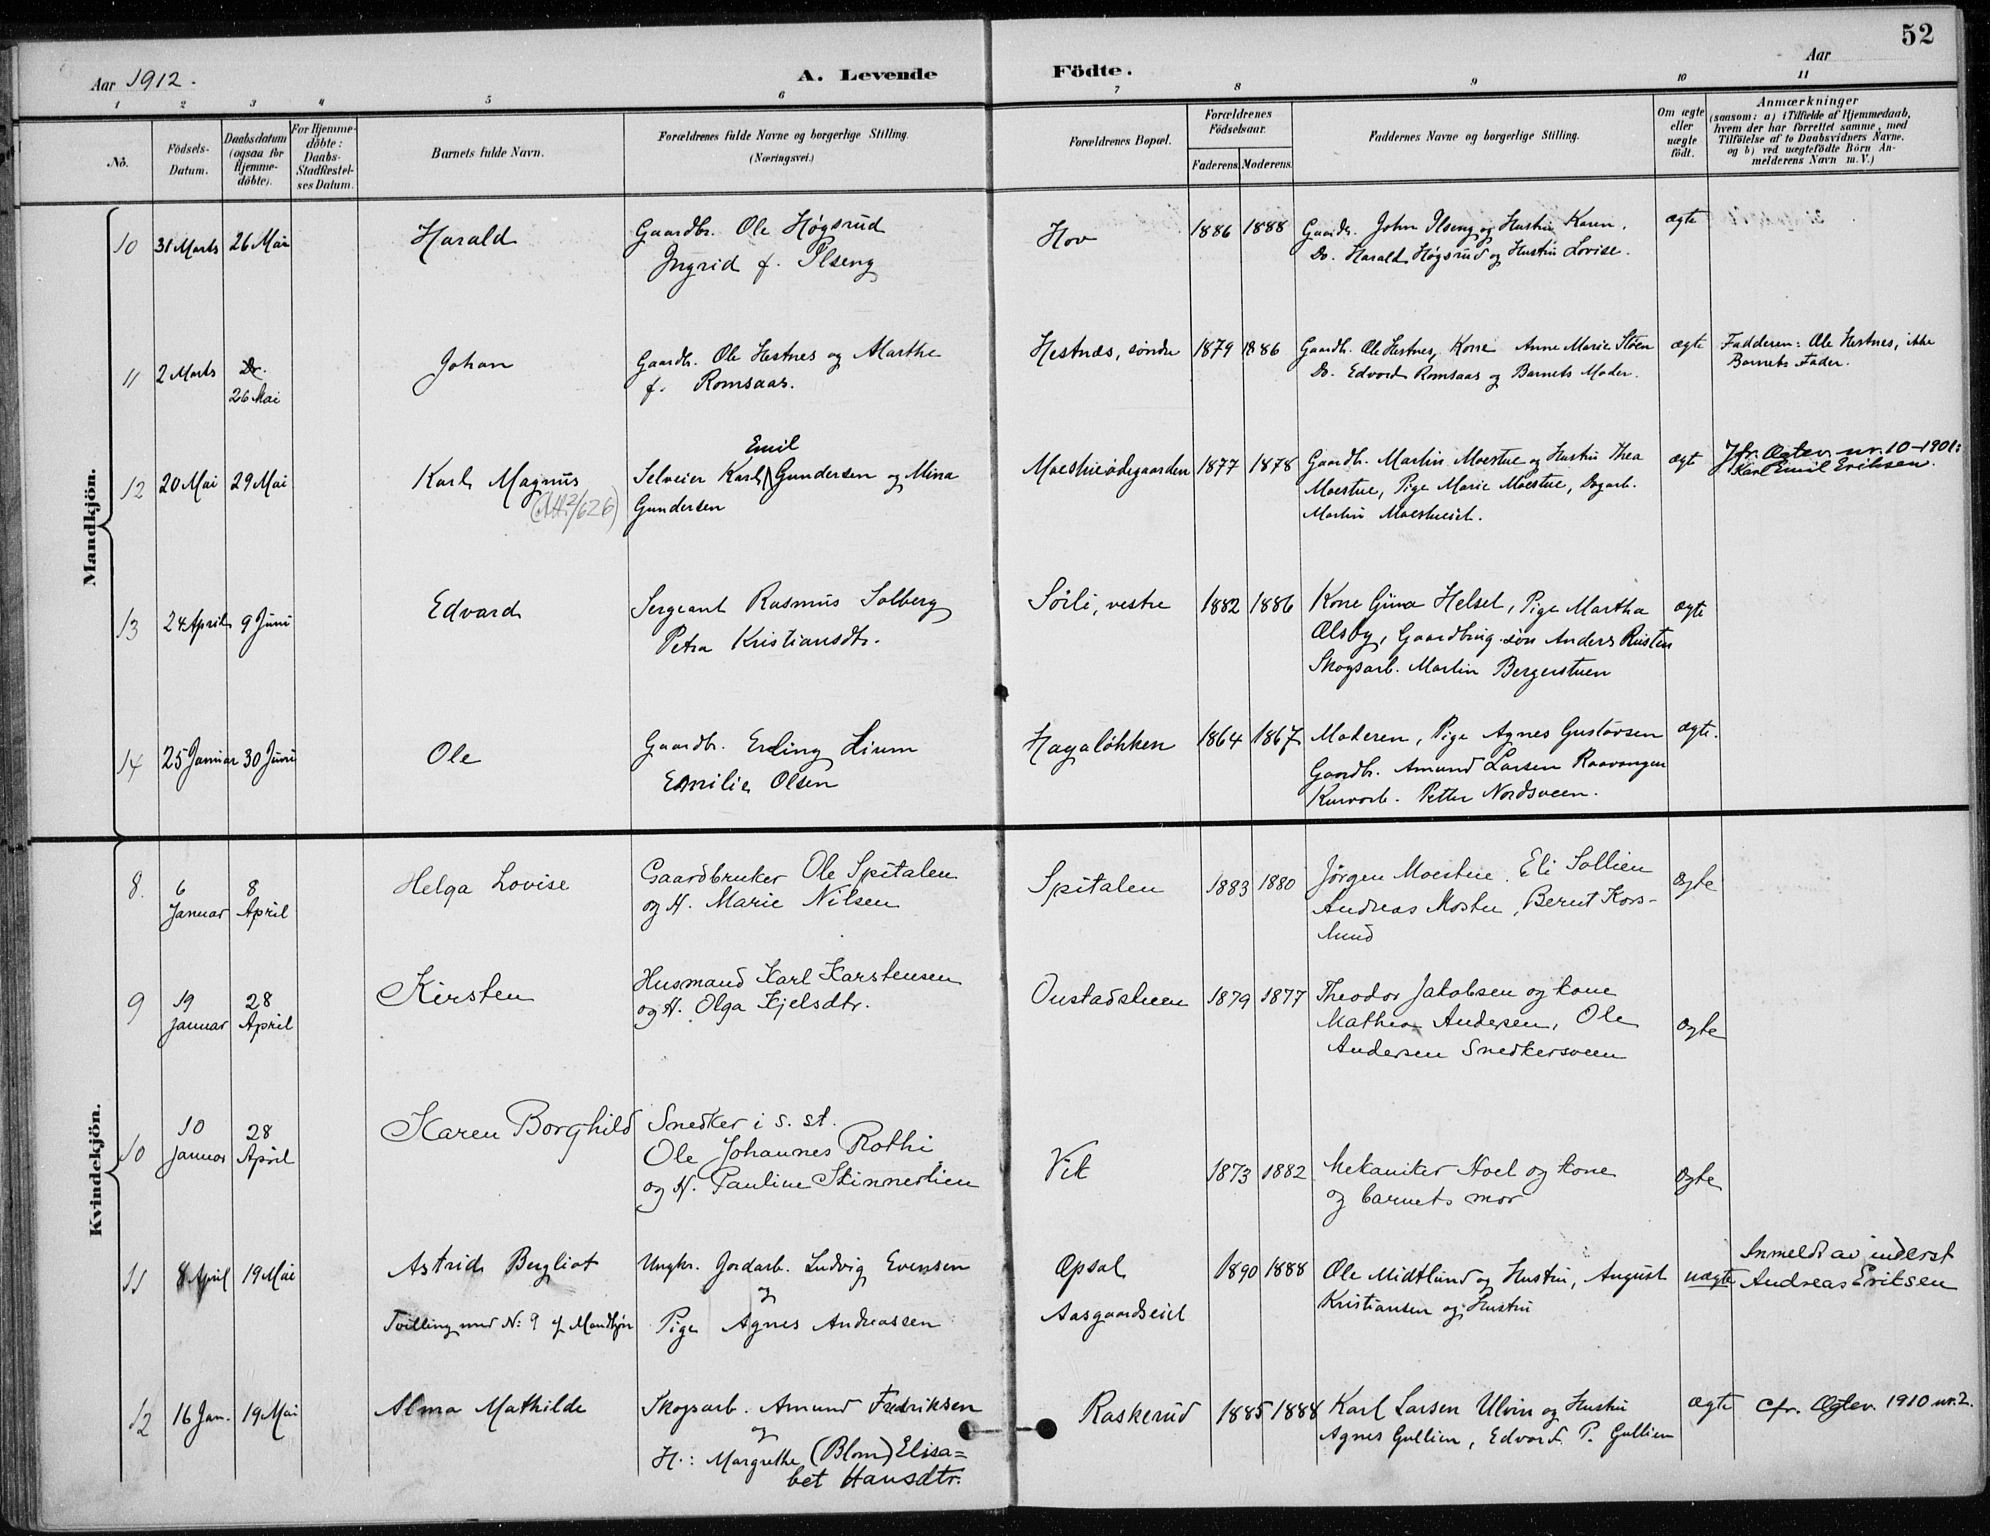 52
Aar 1912.
A. Levende Födte.
Aar
1 2 3 4 5 6 7 8 9 10 11
No.
Födsels-
Datum.
Daabsdatum
(ogsaa for
Hjemme-
döbte).
For Hjemme-
döbte:
Daabs-
Stadfestel-
ses Datum.
Barnets fulde Navn.
Forældrenes fulde Navne og borgerlige Stilling.
(Næringsvei.)
Forældrenes Bopæl.
Forældrenes
Födselsaar.
Faderens. Moderens.
Faddernes Navne og borgerlige Stilling.
Om ægte
eller
uægte
födt.
Anmærkninger
(saasom: a) i Tilfælde af Hjemmedaab,
hvem der har forrettet samme, med
Tilföielse af to Daabsvidners Navne.
og b) ved uægtefödte Börn An-
melderens Navn m. V.)
Mandkjön.
10 31 Marts 26 Mai Harald
Gaardbr. Ole Høgsrud
Ingrid f. Ilseng
Hov 1886 1888
Gaardb. John Ilseng og Hustru Karen.
Do. Harald Høgsrud og Hustru Lovise.
ægte
11 2 Marts Do.
26 Mai
Johan
Gaardb. Ole Hestnes og Marthe
f. Romsaas.
Hestnæs, søndre 1879 1886
Gaardb. Ole Hestnes, Kone Anne Marie Støen
Do. Edvard Romsaas og Barnets Moder.
ægte
Fadderen: Ole Hestnes, ikke
Barnets Fader.
12 20 Mai 29 Mai Karl Magnus
Emil
Selveier Karl Gundersen og Mina
Gundersen
Moestueødegaarden 1877 1878
Gaardb. Martin Moestue og Hustru Thea
Moestue, Pige Marie Moestue, Dagarb.
Martin Moestueeiet.
ægte
Jfr. Ægtev. nr. 10-1901:
Karl Emil Eriksen.
13 24 April 9 Juni Edvard
Sergeant Rasmus Solberg
Petra Kristiansdtr.
Sørli, vestre 1882 1886
Kone Gina Helset, Pige Martha
Ælsby, Gaardbrug. søn Anders Rusten
Skogsarb. Martin Bergerstuen
ægte
14 25 Januar 30 Juni Ole
Gaardbr. Erling Lium
Emilie Olsen
Hagaløkken 1864 1867
Moderen, Pige Agnes Gustavsen
Gaardb. Amund Larsen Raavangen
Petter Nordsveen.
ægte.
Kvindekjön.
8. 6
Januar
8
April
Helga Lovise
Gaardbruker Ole Spitalen
og H. Marie Nilsen
Spitalen 1883 1880
Jørgen Moestue. Eli Sollien
Andreas Mostue, Bernt Kors-
lund
Ægte
9 19
januar
28
April
Kirsten
Husmand Karl Karstensen
og H. Olga Kjelsdtr.
Onstadstuen 1879 1877
Theodor Jakobsen og kone
Mathea Andersen, Ole
Andersen Snedkersveen
Ægte
10 10
januar
28
April
Karen Borghild
Snedker i s. st.
Ole Johannes Rothi
og H. Pauline Skinnerlien
Vik 1873 1882
Mekaniker Hoel og kone
og barnets mor
Ægte
11 8 April 19 Mai Astrid Bergliot
Tvilling med No: 9 af Mandkjøn
Ungkr. Jordarb. Ludvig Evensen
og
Pige Agnes Andreassen
Opsal
Aasgaardseiet
1890 1888
Ole Midtlund og Hustru, August
Kristiansen og Hustru
uægte
Anmeldt av inderst
Andreas Eriksen
12 16 Jan. 19 Mai Alma Mathilde
Skogsarb. Amund Fredriksen
og
H.: Margrethe (Blom) Elisa=
bet Hansdtr.
Raskerud 1885 1888
Karl Larsen Ulvin og Hustru
Agnes Gullien, Edvard P. Gullien
ægte
Cfr. Ægtev. 1910 nr. 2.